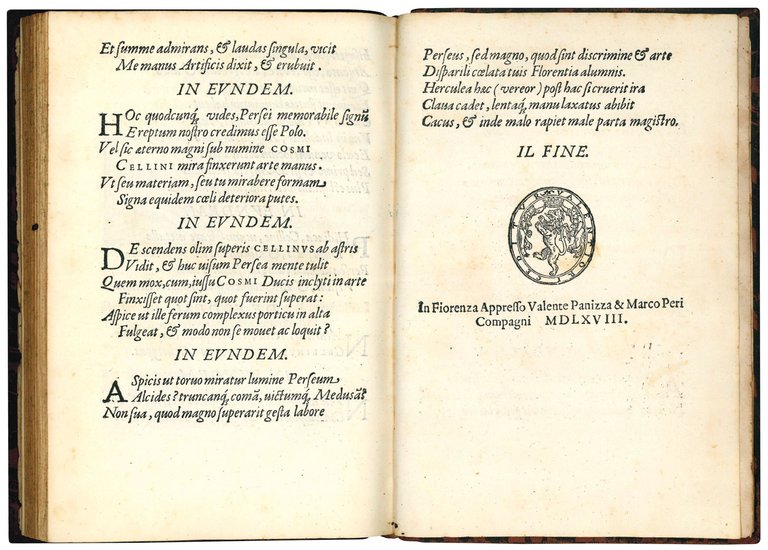 Et summe admirans, & laudas singula, vicit
Me manus Artificis dixit, & erubuit.
IN EVNDEM.
HOc quodcunq; vides, Persei memorabile signũ
Ereptum nostro credimus esse Polo.
Vel sic æterno magni sub numine COSMI
CELLINI mira finxerunt arte manus.
Vt seu materiam, seu tu mirabere formam
Signa equidem cœli deteriora putes.
IN EVNDEM.
DEscendens olim superis CELLINVS ab astris
Vidit, & huc uisum Persea mente tulit
Quem mox, cum, iussu COSMI Ducis inclyti in arte
Finxisset quot sint, quot fuerint superat:
Aspice ut ille ferum complexus porticu in alta
Fulgeat, & modo non se mouet ac loquit?
IN EVNDEM.
ASpicis ut toruo miratur lumine Perseum
Alcides? truncanq; comã, uictumq; Medusã?
Non sua, quod magno superarit gesta labore
Perseus, sed magno, quod sint discrimine & arte
Disparili cœlata tuis Florentia alumnis.
Herculea hac (vereor) post hac si cruerit ira
Claua cadet, lentaq; manu laxatus abibit
Cacus, & inde malo rapiet male parta magistro.
IL FINE.
In Fiorenza Appresso Valente Panizza & Marco Peri
Compagni MDLXVIII.